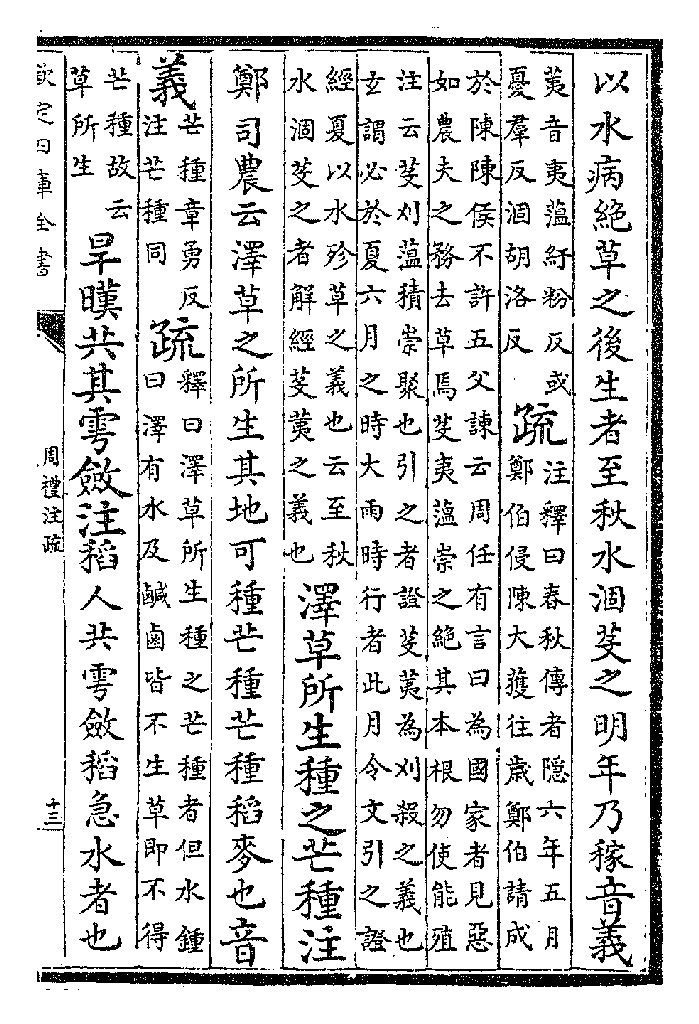 以水病絶草之後生者至秋水涸芟之明年乃稼音義
荑音夷蕰紆粉反或
憂羣反涸胡洛反
疏
注釋曰春秋傳者隠六年五月
鄭伯侵陳大獲往歲鄭伯請成
於陳陳侯不許五父諫云周任有言曰為國家者見惡
如農夫之務去草焉芟夷蕰崇之絶其本根勿使能殖
注云芟刈蕰積崇聚也引之者證芟荑為刈殺之義也
玄謂必於夏六月之時大雨時行者此月令文引之證
經夏以水殄草之義也云至秋
水涸芟之者解經芟荑之義也
澤草所生種之芒種注
鄭司農云澤草之所生其地可種芒種芒種稻麥也音
義
芒種章勇反
注芒種同
疏
釋曰澤草所生種之芒種者但水鍾
曰澤有水及鹹鹵皆不生草即不得
芒種故云
草所生
旱暵共其雩斂注稻人共雩斂稻急水者也
欽定四庫全書
周禮注疏
十三